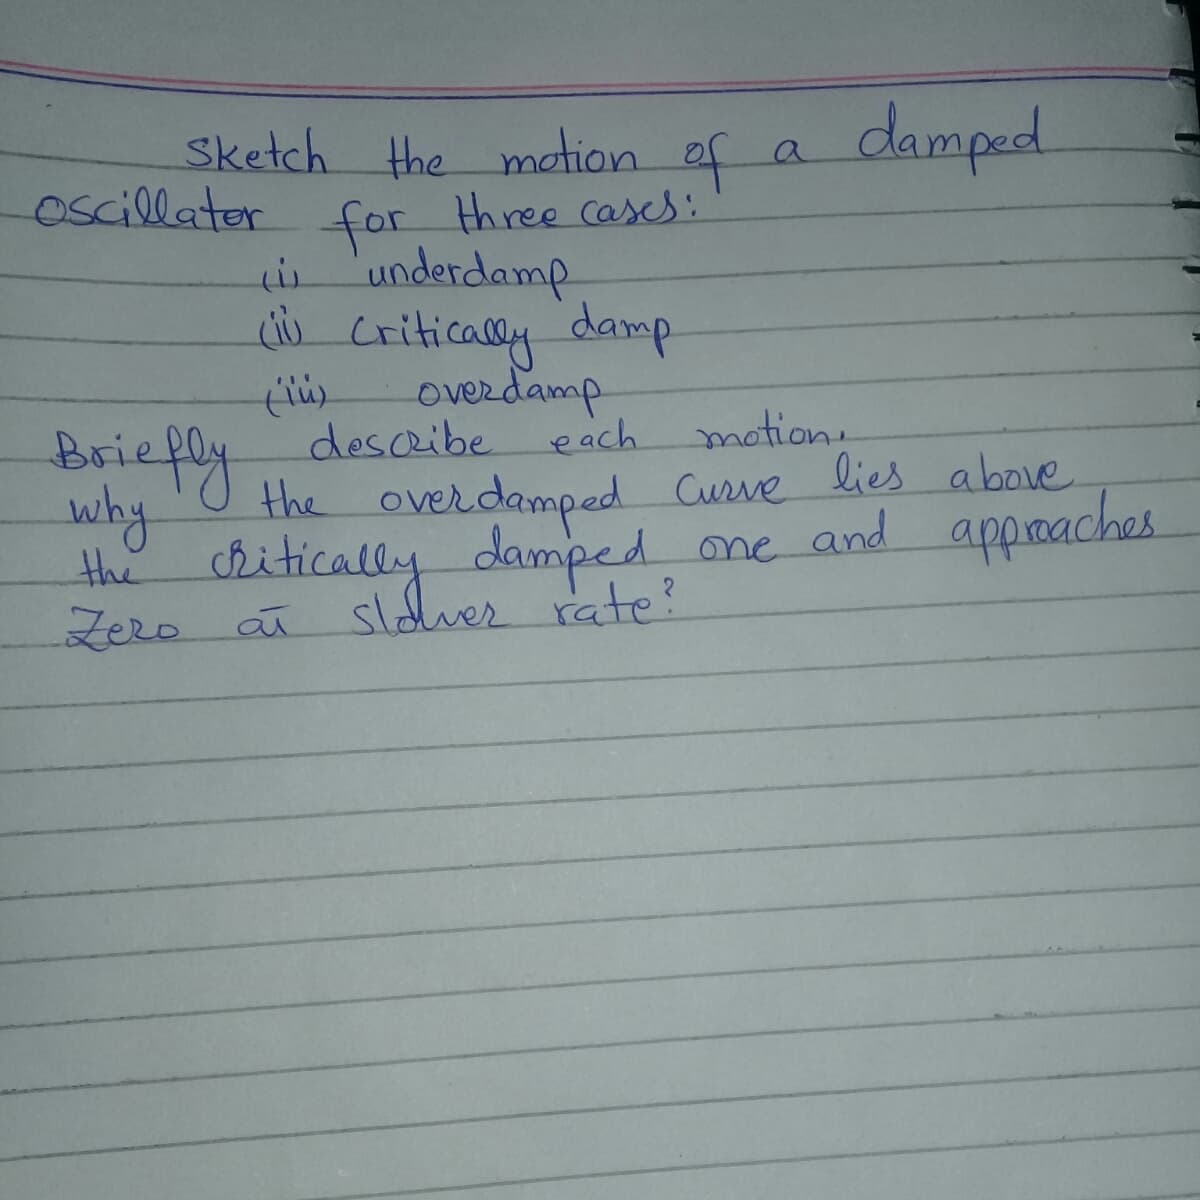 Sketch the motion of a damped
oscillator for three cases:
(i) underdamp
(ii) Critically damp
(iii) overdamp
Briefly describe each motion.
why the overdamped Curve lies above
the critically damped one and approaches
Zero at slower rate?